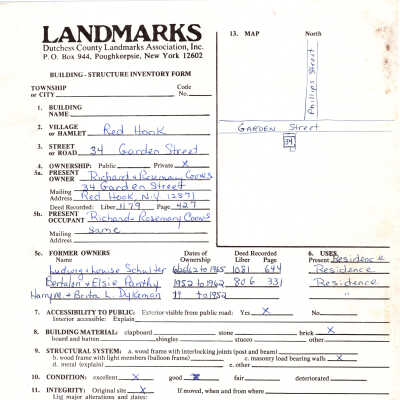 LANDMARKS
Dutchess County Landmarks Association, Inc.
P. O. Box 944, Poughkeepsie, New York 12602
BUILDING - STRUCTURE INVENTORY FORM
TOWNSHIP or CITY
Code No.
1. BUILDING NAME
2. VILLAGE or HAMLET Red Hook
3. STREET or ROAD 34 Garden Street
4. OWNERSHIP: Public Private X
5a. PRESENT OWNER Richard & Rosemary Coons
34 Garden Street
Mailing Address Red Hook, N.Y. 12571
Deed Recorded: Liber 1179 Page 427
5b. PRESENT OCCUPANT Richard - Rosemary Coons
Mailing Address same
13. MAP
North
Phillips Street
GARDEN Street
34
5c. FORMER OWNERS
Name
Dates of Ownership
Deed Recorded
Liber Page
6. USES
Present Residence
Ludwig & Louise to 1965 1081 644 Residence
Bertalan & Elsie 1952 to 1962 806 331 Residence
Harry M. & Berta L. Dykeman 19 to 1952 "
7. ACCESSIBILITY TO PUBLIC: Exterior visible from public road: Yes X No
Interior accessible: Explain
8. BUILDING MATERIAL: clapboard stone brick X
board and batten shingles stucco other
9. STRUCTURAL SYSTEM: a. wood frame with interlocking joints (post and beam)
b. wood frame with light members (balloon frame) c. masonry load bearing walls X
d. metal (explain) e. other
10. CONDITION: excellent X good X fair deteriorated
11. INTEGRITY: Original site X If moved, when and from where